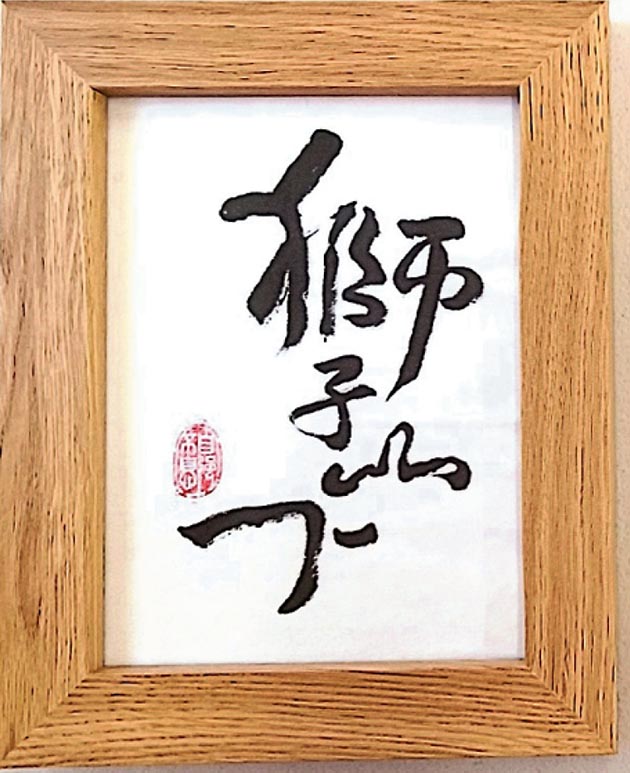 獅子山下